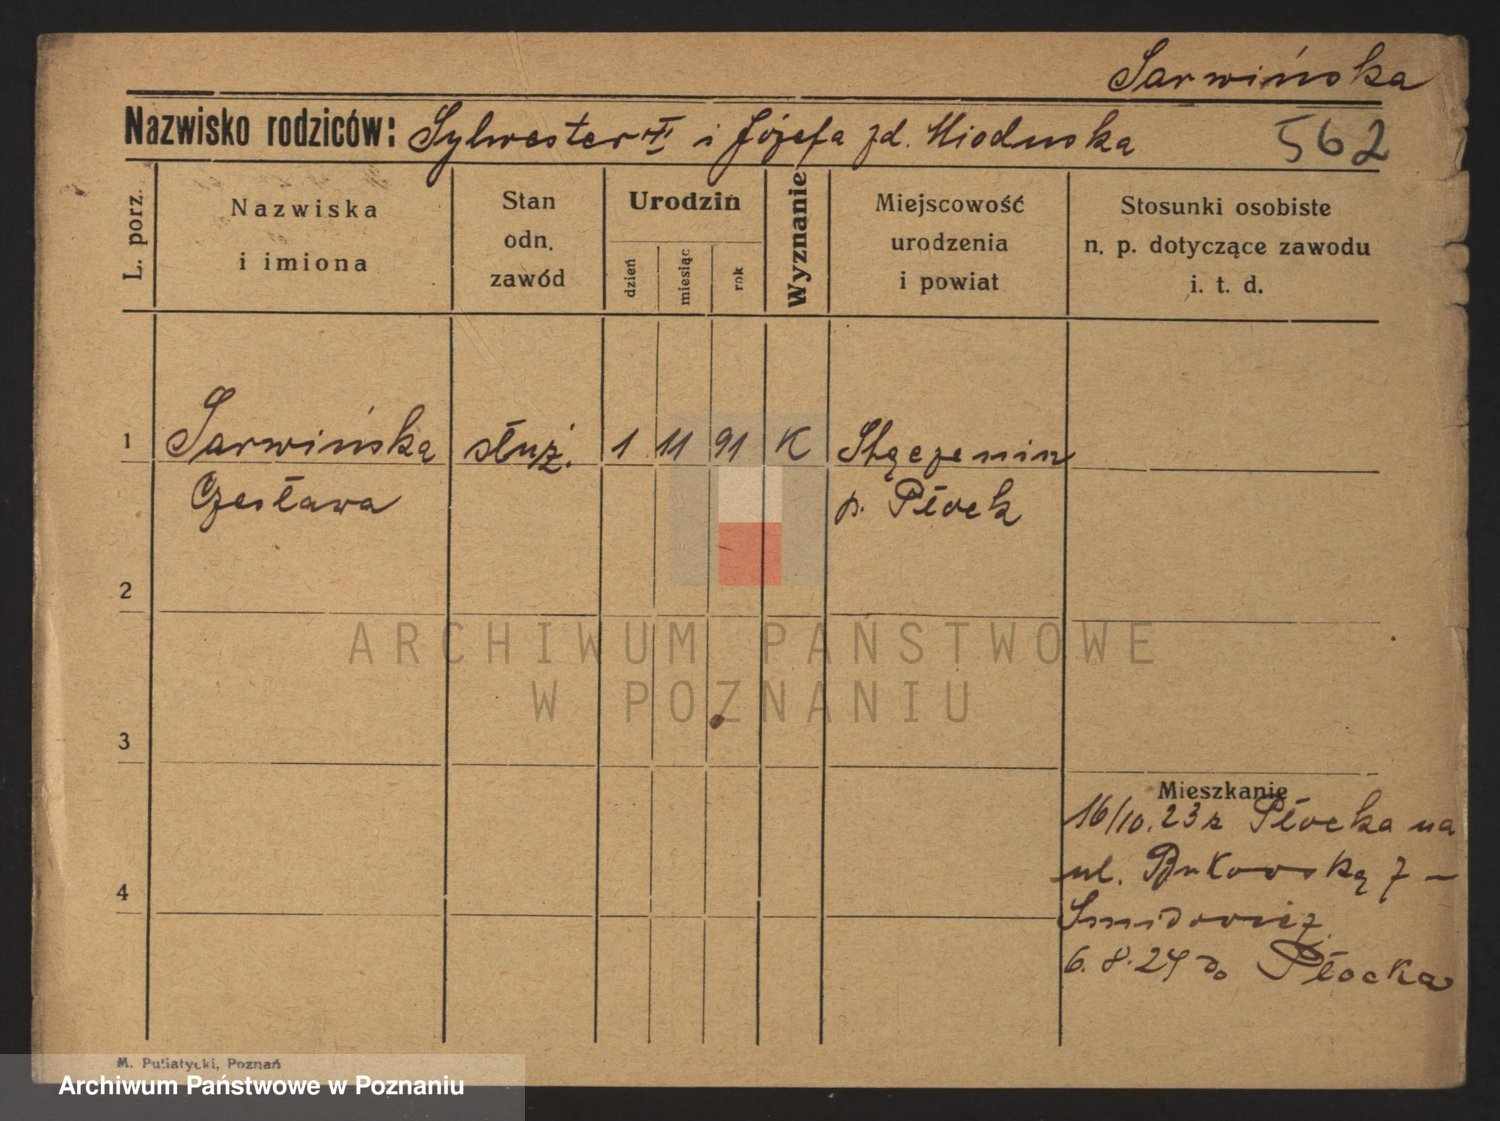 Sarwińska
Nazwisko rodziców: Sylwester i Józefa zd. Mioduska
562
L. porz.
Nazwiska
i imiona
Stan
odn.
zawód
Urodzin
dzień
miesiąc
rok
Wyznanie
Miejscowość
urodzenia
i powiat
Stosunki osobiste
n. p. dotyczące zawodu
i. t. d.
1 Sarwińska służ. 1 11 91 K
Czesława p. Płock
2
3
4
Mieszkanie
16/10.23 z Płocka na
ul. Bukowską 7 –
Smidowicz
6.8.24 do Płocka
M. Putiatycki, Poznań
ARCHIWUM PAŃSTWOWE
W POZNANIU
Archiwum Państwowe w Poznaniu